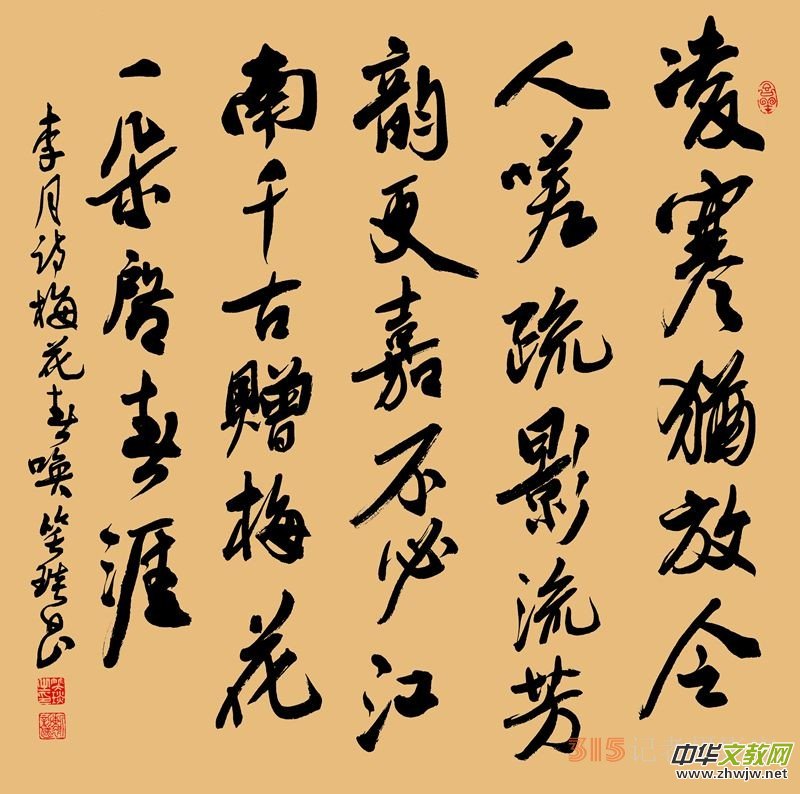 凌寒犹放令
人嗟疏影流芳
韵更嘉不必江
南千古赠梅花
一朵啓春涯
李月诗梅花春唤
315记者
中华文教网
www.zhwjw.net